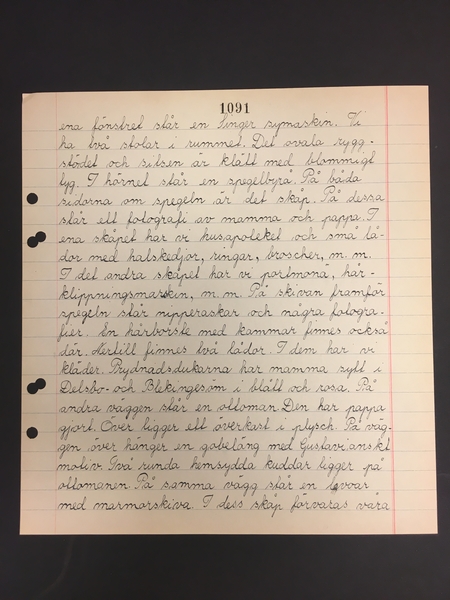 1091
ena fönstret står en Singer symaskin. Vi
ha två stolar i rummet. Det ovala rygg-
stödet och sitsen är klätt med blommigt
tyg. I hörnet står en spegelbyrå. På båda
sidorna om spegeln är det skåp. På dessa
står ett fotografi av mamma och pappa. I
ena skåpet har vi husapoteket och små lå-
dor med halskedjor, ringar, broscher, m. m.
I det andra skåpet har vi portmonä, hår-
klippningsmarskin, m. m. På skivan framför
spegeln står nipperaskar och några fotogra-
fier. En hårborste med kammar finnes också
där. Nertill finnes två lådor. I dem har vi
kläder. Prydnadsdukarna har mamma sytt i
Delsbo- och Blekingesöm i blått och rosa. På
andra väggen står en ottoman. Den har pappa
gjort. Över ligger ett överkast i plysch. På väg-
gen över hänger en gobeläng med Gustavianskt
motiv. Två runda hemsydda kuddar ligger på
ottomanen. På samma vägg står en lavoar
med marmorskiva. I dess skåp förvaras våra